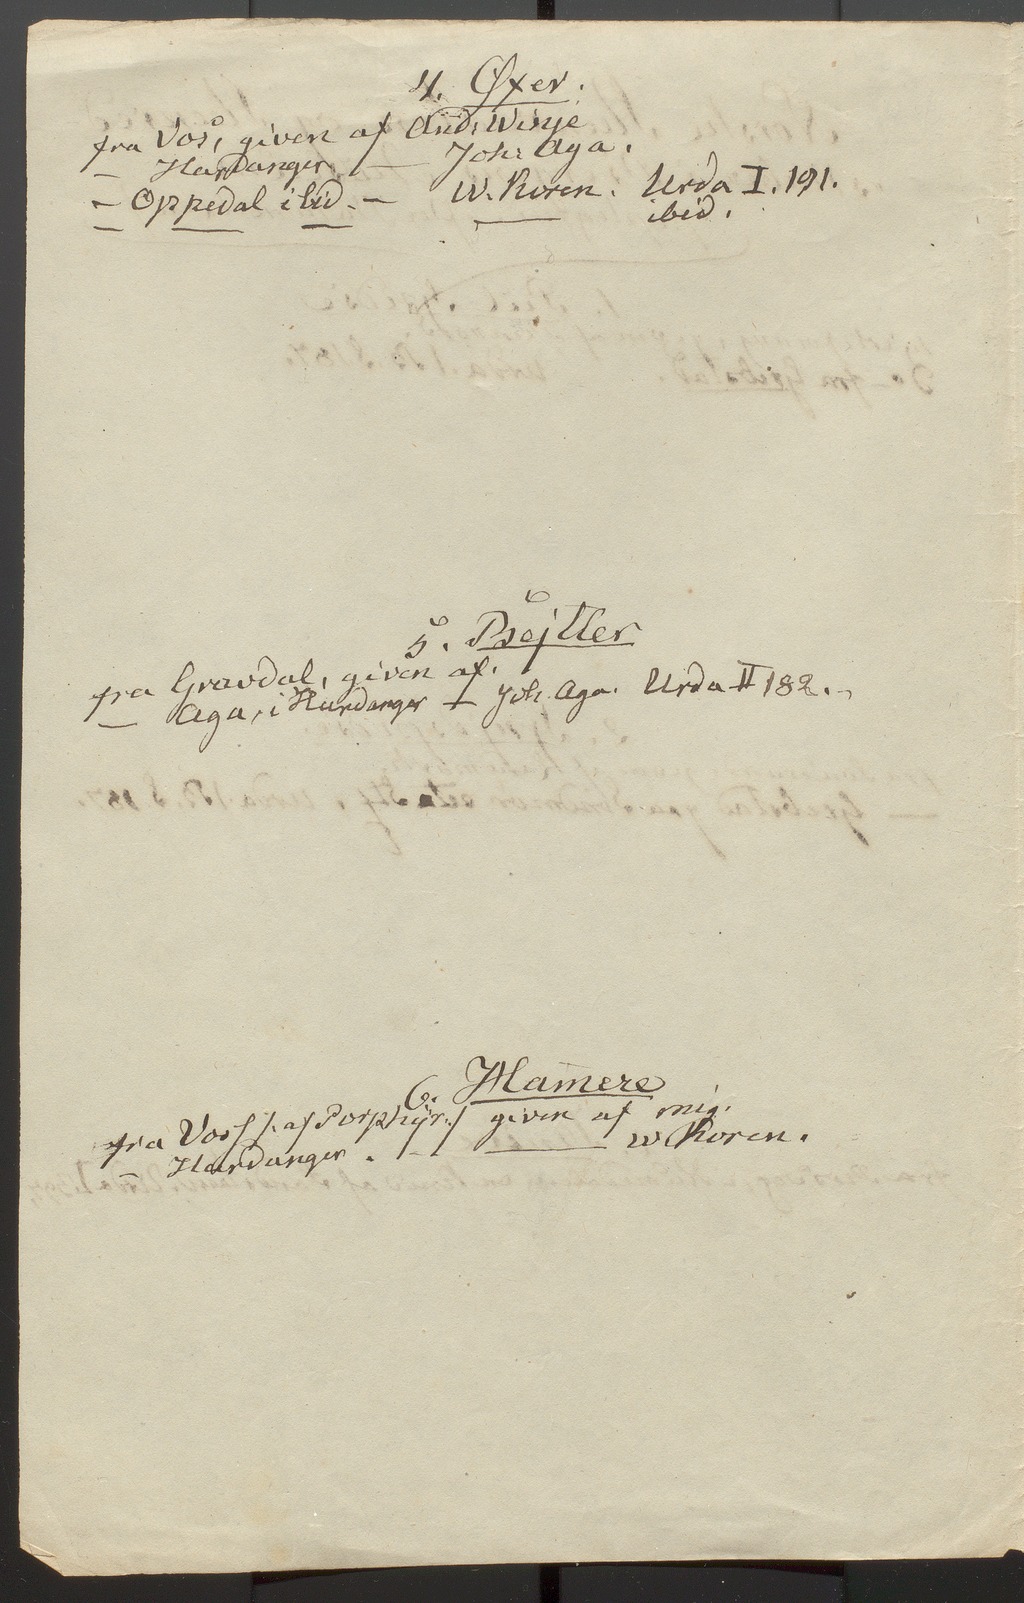 4. Øxer.
fra Vos, given af And: Winje
— Hardanger — Joh: Aga.
— Oppedal ibid. — W. Koren. Urda I. 191.
— — — — ibid.
5. Psejller
fra Gravdal, given af.
— Aga, i Hardanger — Joh. Aga. Urda II 182.
6. Ham̄ere
fra Voss /: af Porphyr :/ given af mig.
— Hardanger. — — W Koren.